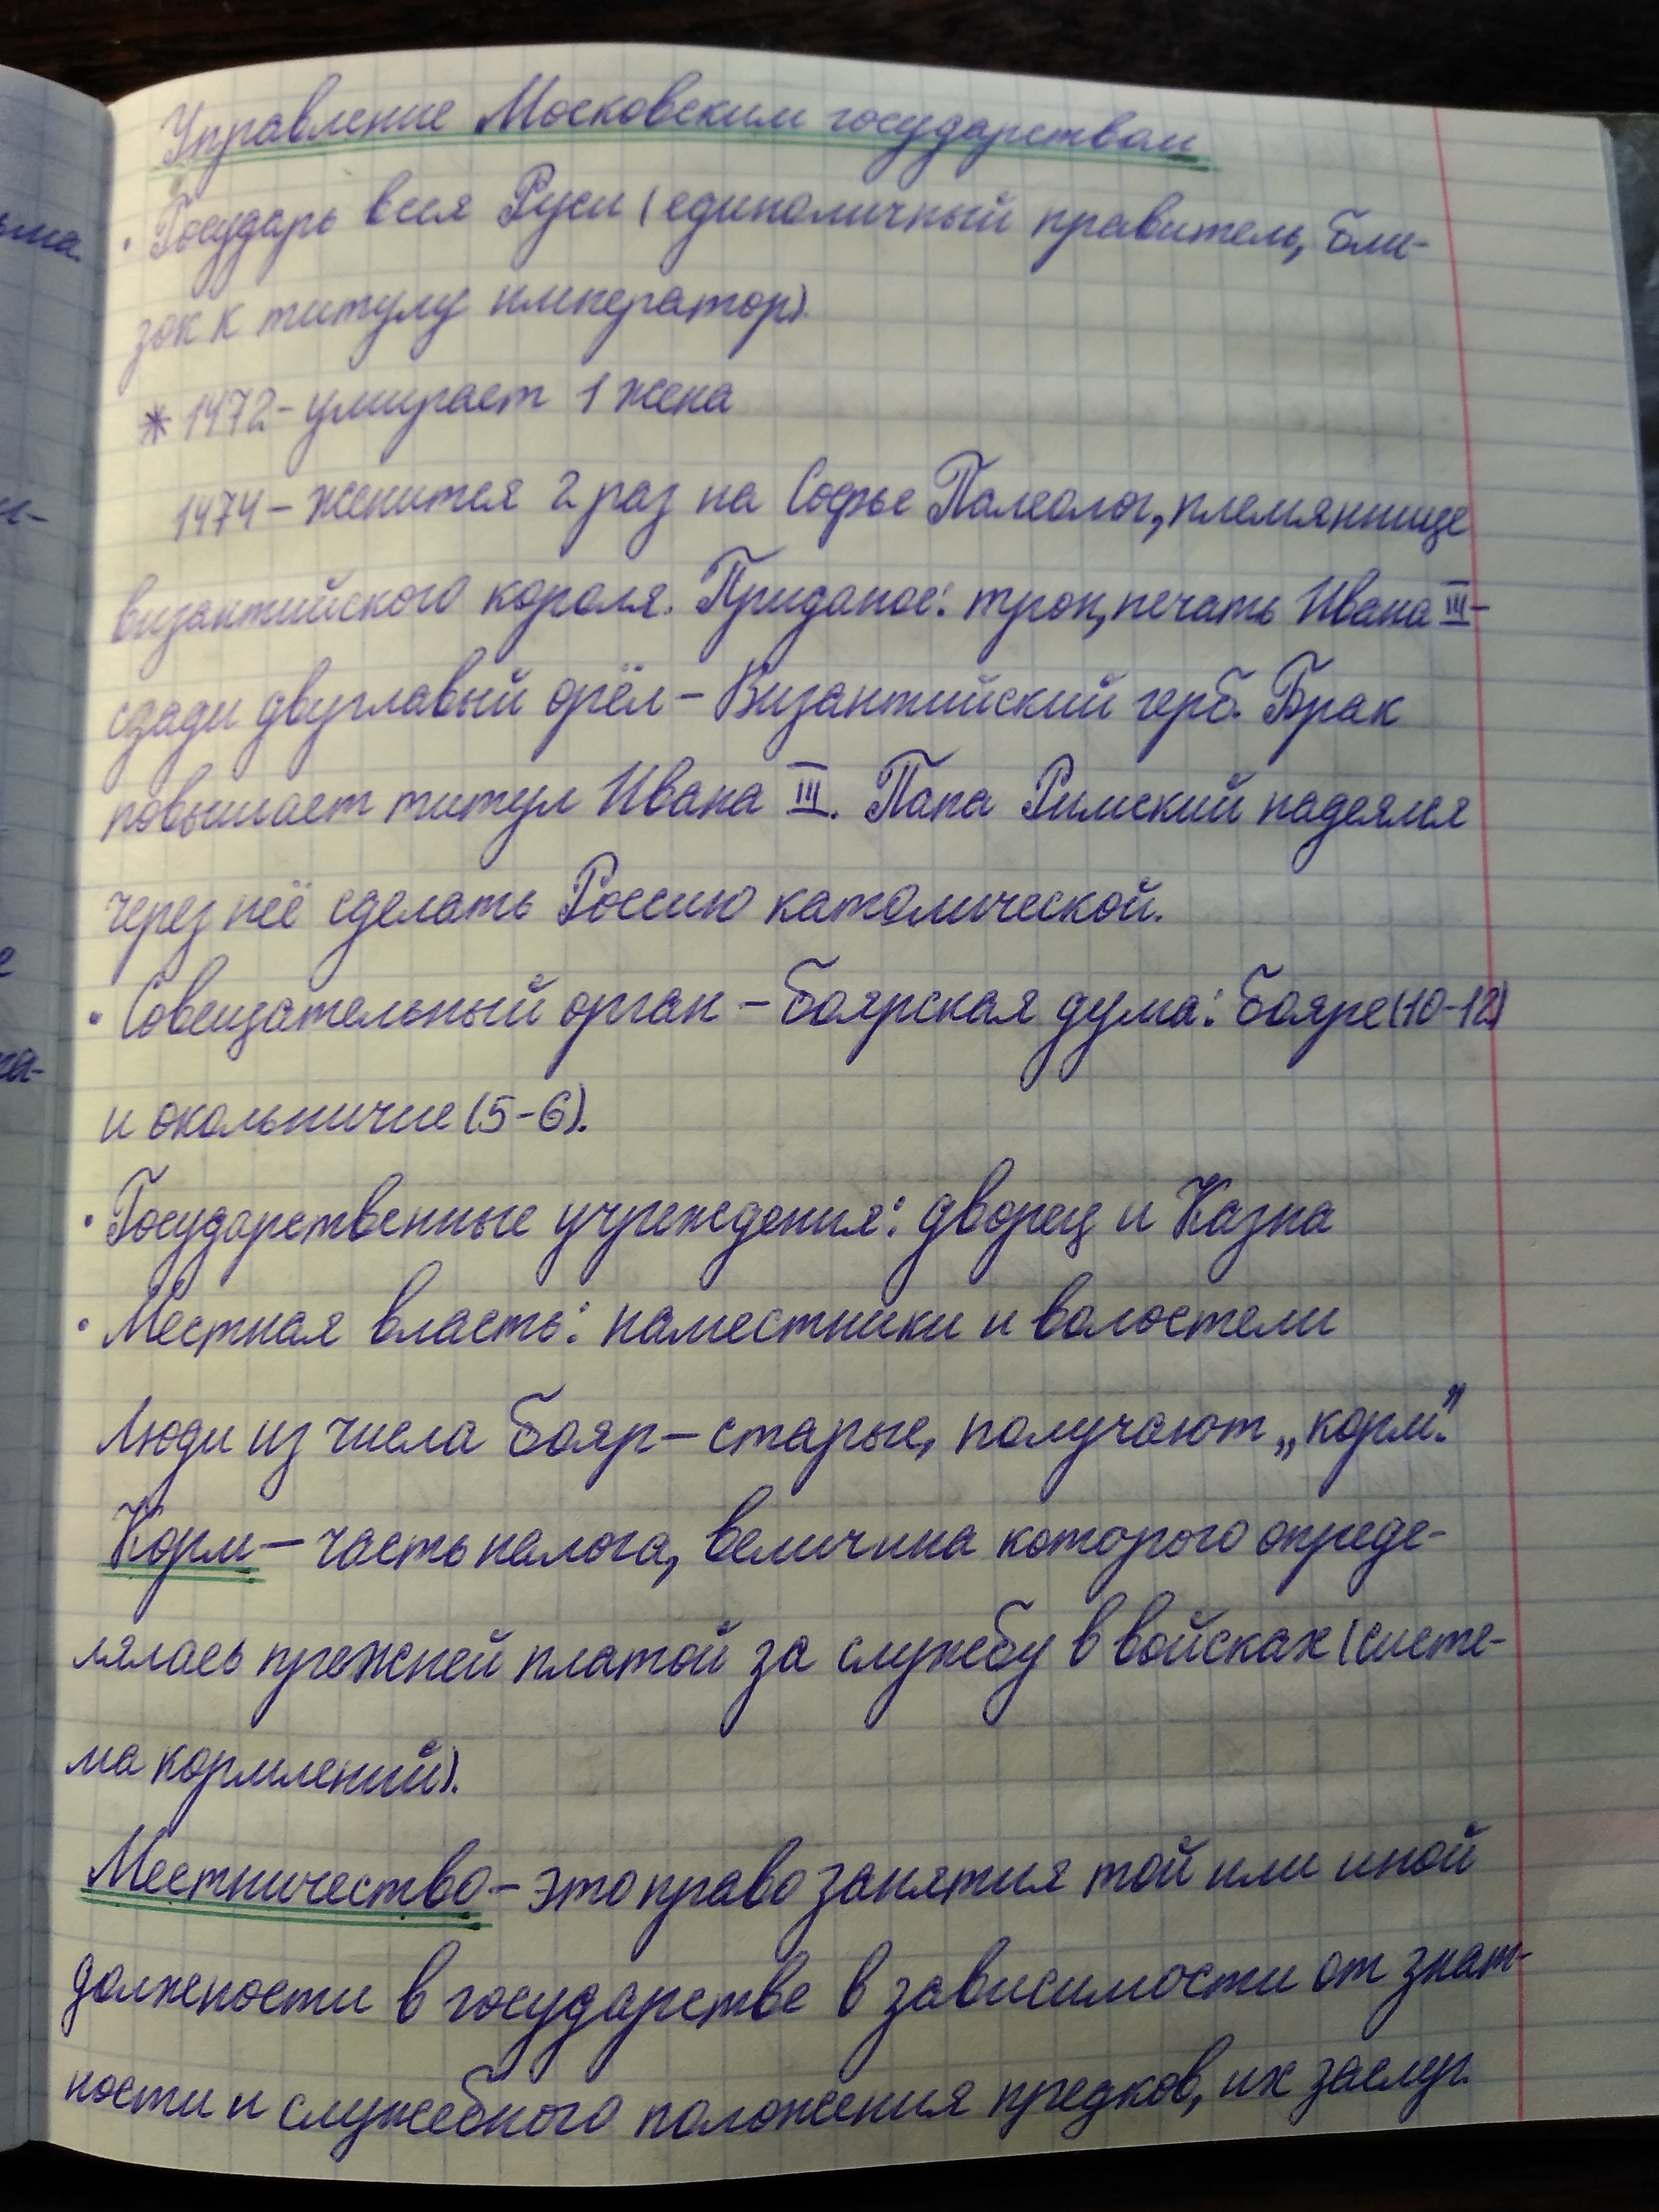 Управление Московским государством
• Государь всея Руси (единоличный правитель, бли-
зок к титулу император).
* 1472 - умирает 1 жена
1474 - женится 2 раз на Софье Палеолог, племяннице
византийского короля. Приданое: трон, печать Ивана III -
сзади двуглавый орёл - Византийский герб. Брак
повышает титул Ивана III. Папа Римский надеялся
через неё сделать Россию католической.
• Совещательный орган - Боярская дума: бояре (10-12)
и окольничие (5-6).
• Государственные учреждения: дворец и Казна
• Местная власть: наместники и волостели
Люди из числа бояр - старые, получают „корм".
Корм - часть налога, величина которого опреде-
лялась прежней платой за службу в войсках (систе-
ма кормлений).
Местничество - это право занятия той или иной
должности в государстве в зависимости от знат-
ности и служебного положения предков, их заслуг.
ьма.
а-